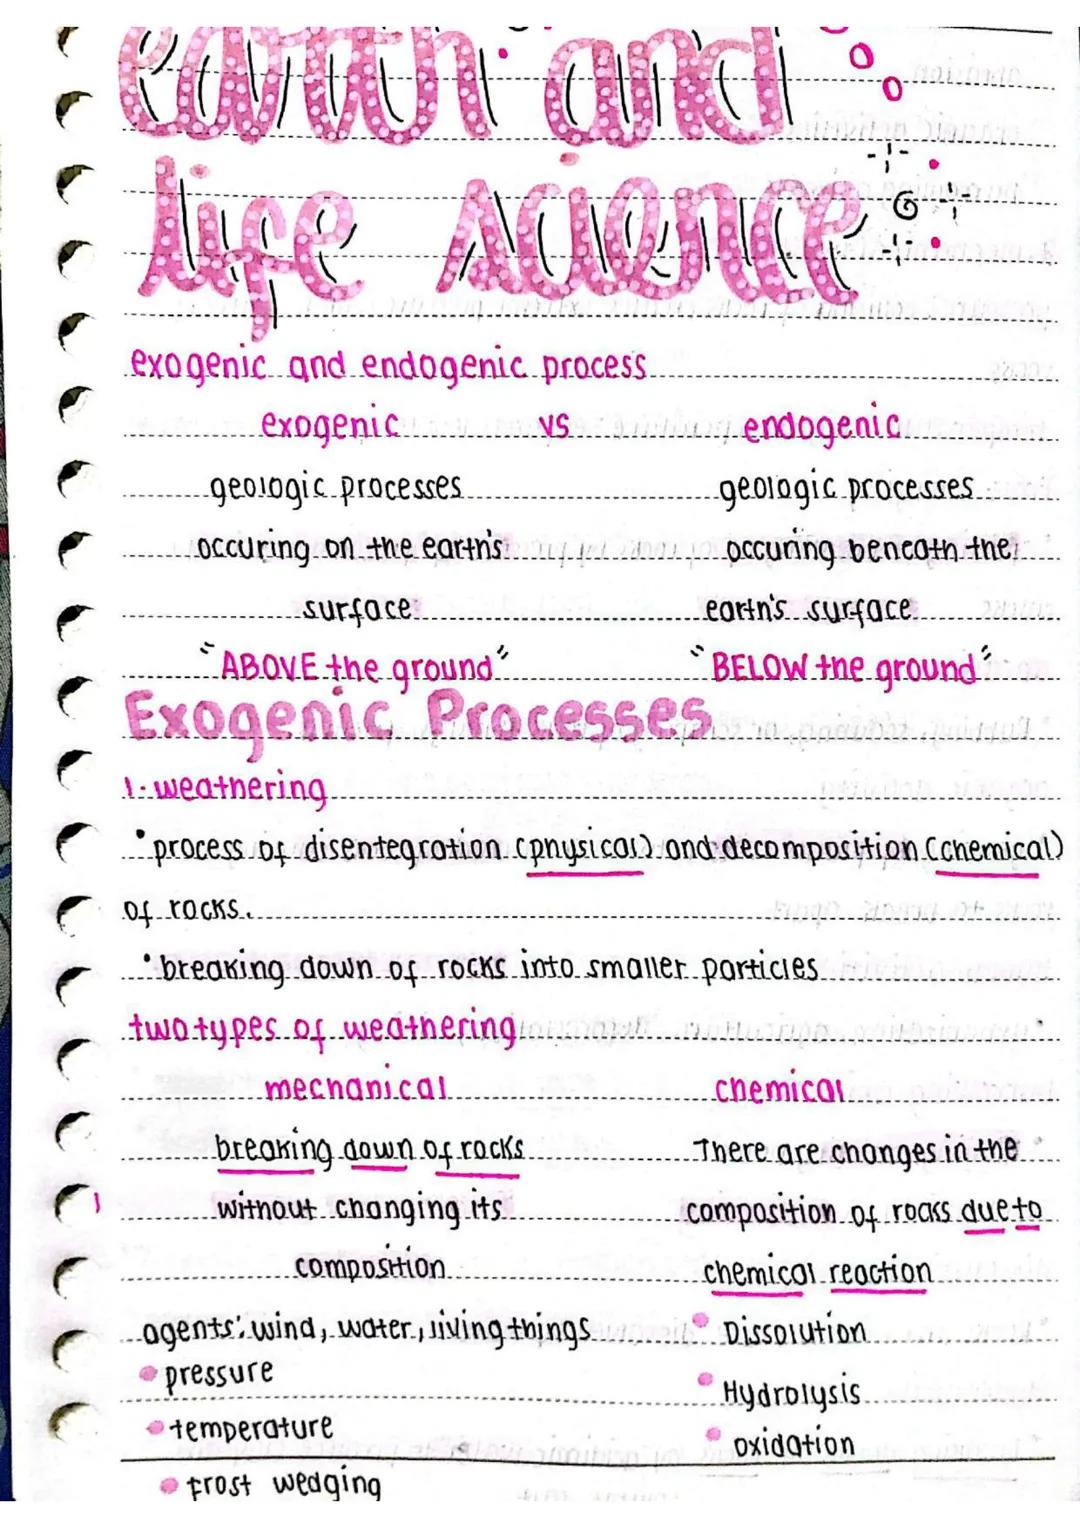 earth and
life science
exogenic and endogenic process
exogenic vs endogenic
geologic processes geologic processes
occuring on the earth's occuring beneath the
surface earth's surface
"ABOVE the ground" "BELOW the ground"
Exogenic Processes
1. weathering
• process of disentegration (physical) and decomposition (chemical)
of rocks.
• breaking down of rocks into smaller particles
two types of weathering
mechanical chemical
breaking down of rocks There are changes in the
without changing its composition of rocks due to
composition chemical reaction
agents: wind, water, living things • Dissolution
• pressure
• Hydrolysis
• temperature
• oxidation
• frost wedging